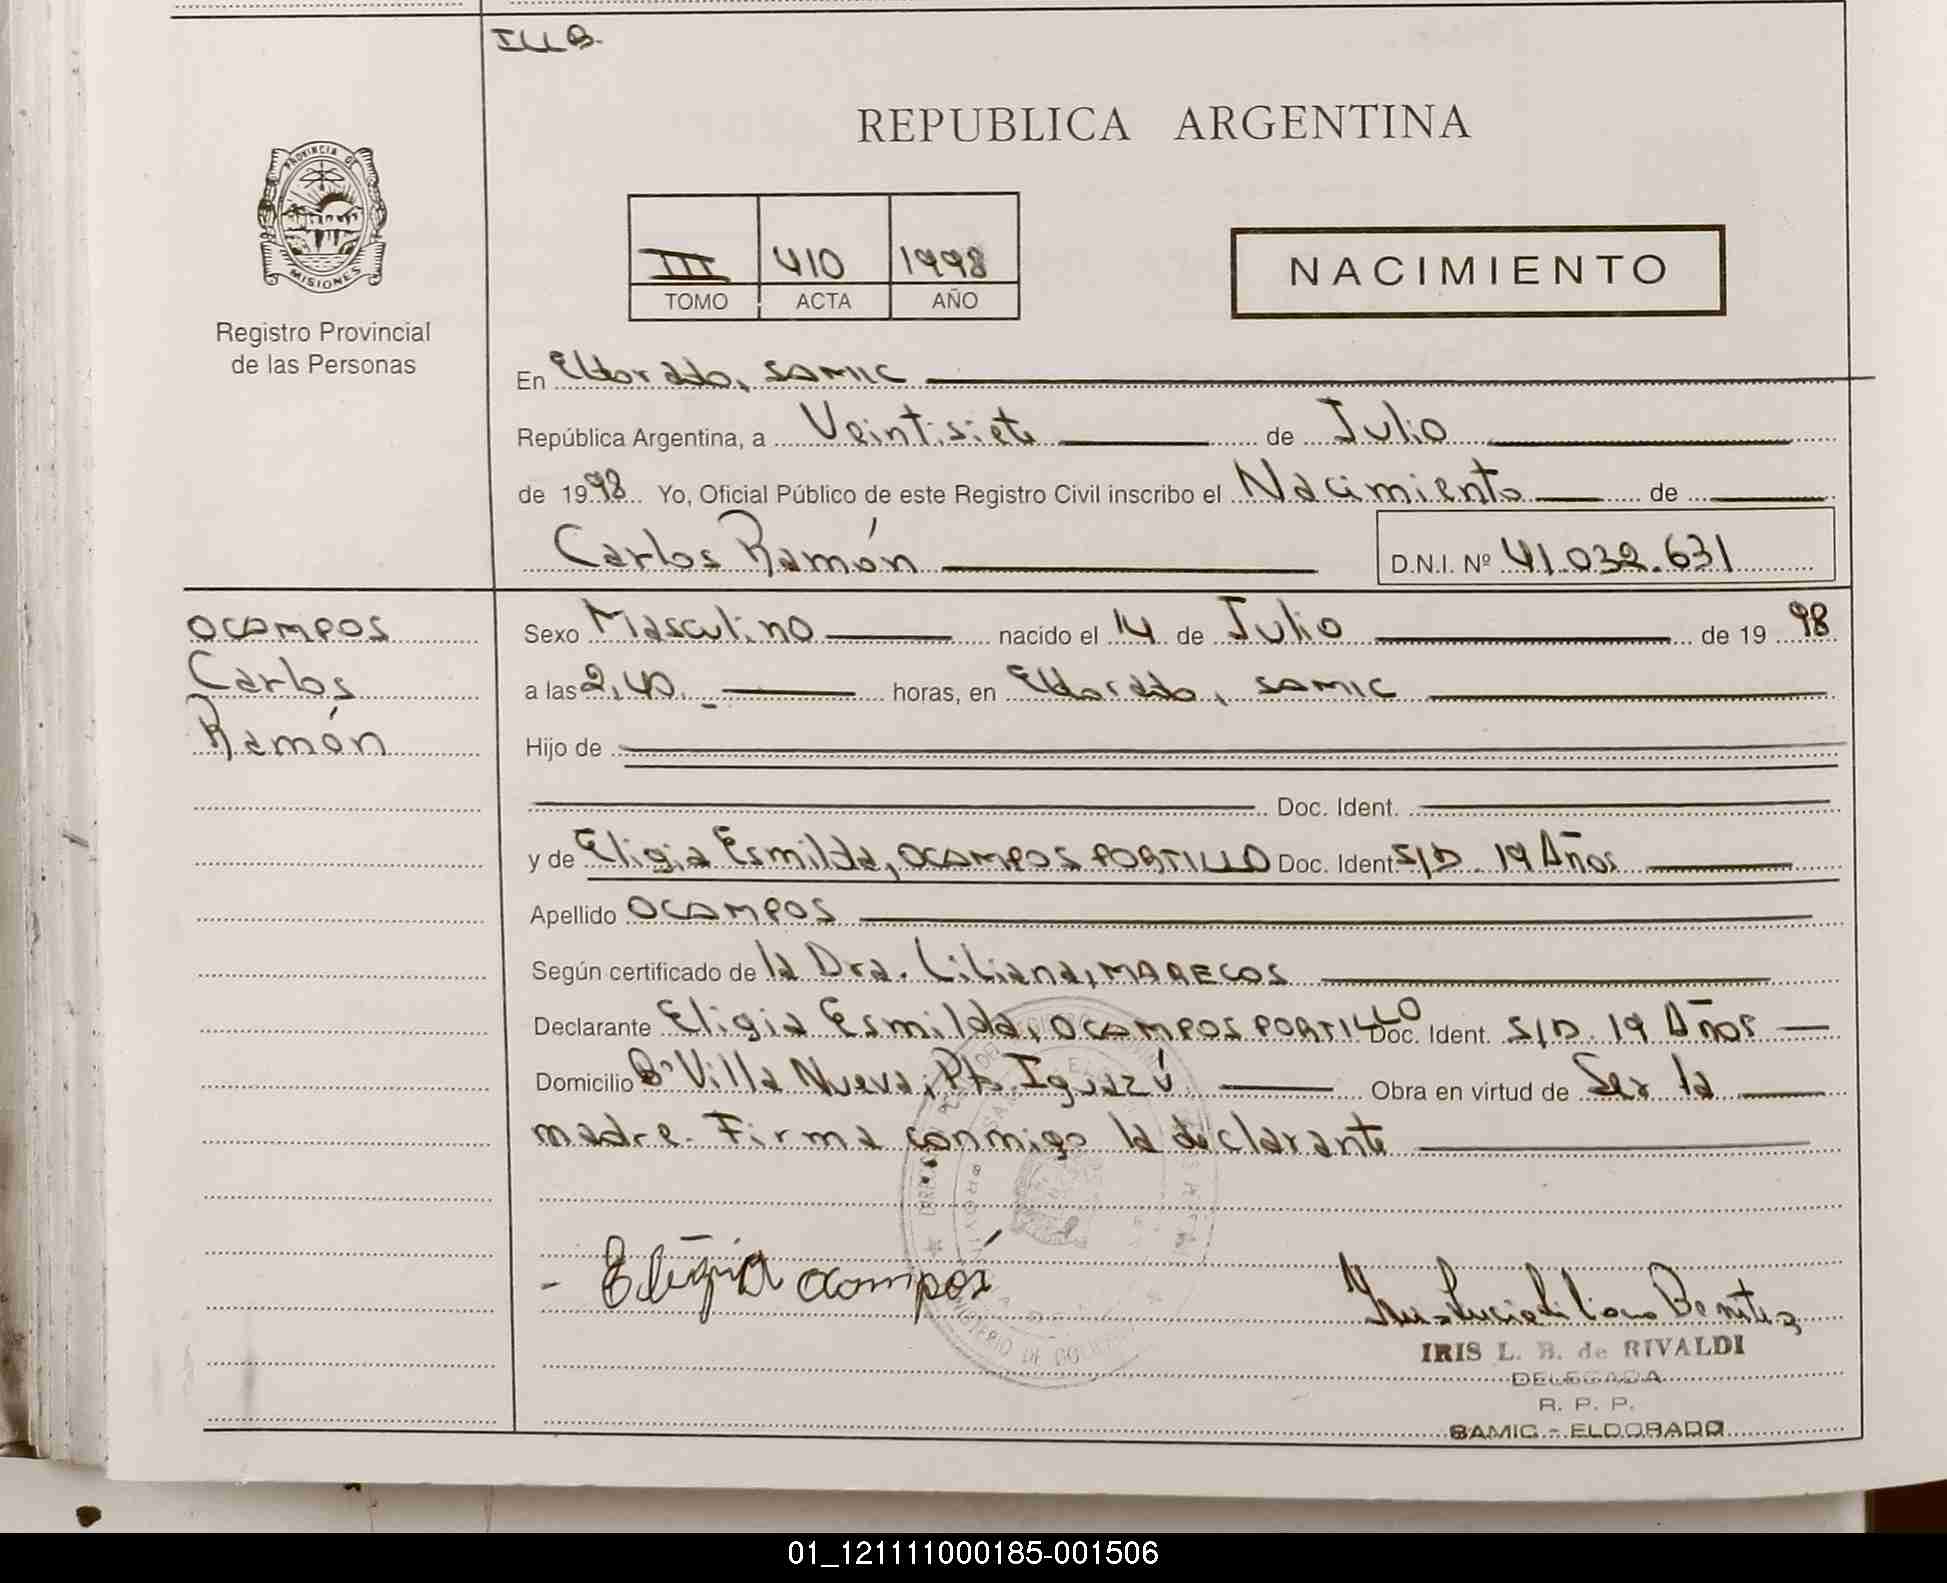 ILLB.
REPUBLICA ARGENTINA
PROVINCIA DE
MISIONES
Registro Provincial
de las Personas
III 410 1998
TOMO ACTA AÑO
NACIMIENTO
En Eldorado, SAMIC
República Argentina, a Veintisiete de Julio
de 1998 Yo, Oficial Público de este Registro Civil inscribo el Nacimiento de
Carlos Ramón D.N.I. Nº 41.032.631
OCAMPOS
Carlos
Ramón
Sexo Masculino nacido el 14 de Julio de 19 98
a las 2,40. horas, en Eldorado, SAMIC
Hijo de
Doc. Ident.
y de Eligia Esmilda, OCAMPOS PORTILLO Doc. Ident. S/D. 19 Años
Apellido OCAMPOS
Según certificado de la Dra. Liliana, MARECOS
Declarante Eligia Esmilda, OCAMPOS PORTILLO Doc. Ident. S/D. 19 Años
Domicilio Bº Villa Nueva, Pto. Iguazú. Obra en virtud de Ser la
madre. Firma conmigo la declarante
- Eligia ocampos
Iris Lucia Liliana Benitez
IRIS L. B. de RIVALDI
DELEGADA
R. P. P.
SAMIC - ELDORADO
01_121111000185-001506